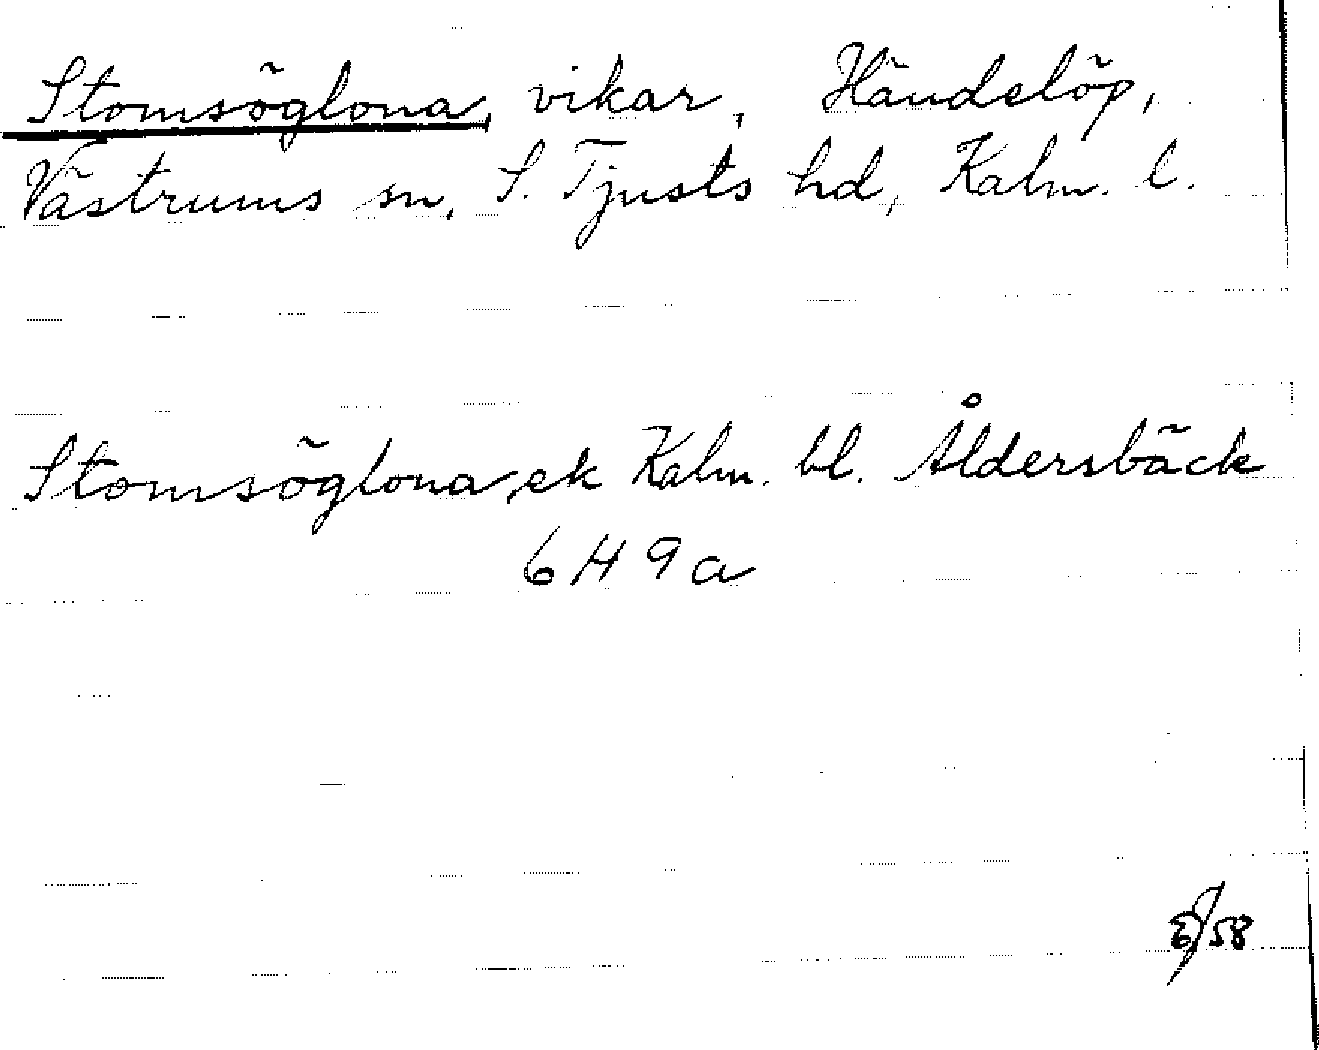 Stomsöglona, vikar, Händelöp,
Västrums sn, S. Tjusts hd, Kalm. l.
Stomsöglona, ek Kalm. bl. Åldersbäck
6 H 9 a
/58